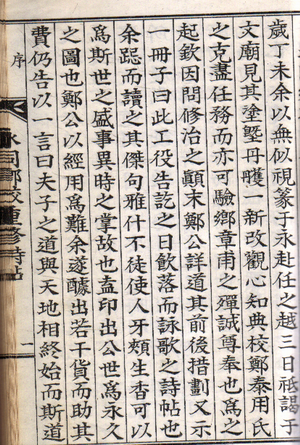 歲丁未余以無似視篆于永赴任之越三日祗謁于
文廟見其塗墍丹雘一新改觀心知典校鄭泰用氏
之古盡任務而亦可驗鄉章甫之殫誠尊奉也爲之
起欽因問修治之顛末鄭公詳道其前後措劃又示
一冊子曰此工役告訖之日飮落而詠歌之詩帖也
余跽而讀之其傑句雅什不徒使人牙頰生香可以
爲斯世之盛事異時之掌故也盍印出公世爲永久
之圖也鄭公以經用爲難余遂醵出若干貨而助其
費仍告以一言曰夫子之道與天地相終始而斯道
序
永同鄉校重修詩帖
一